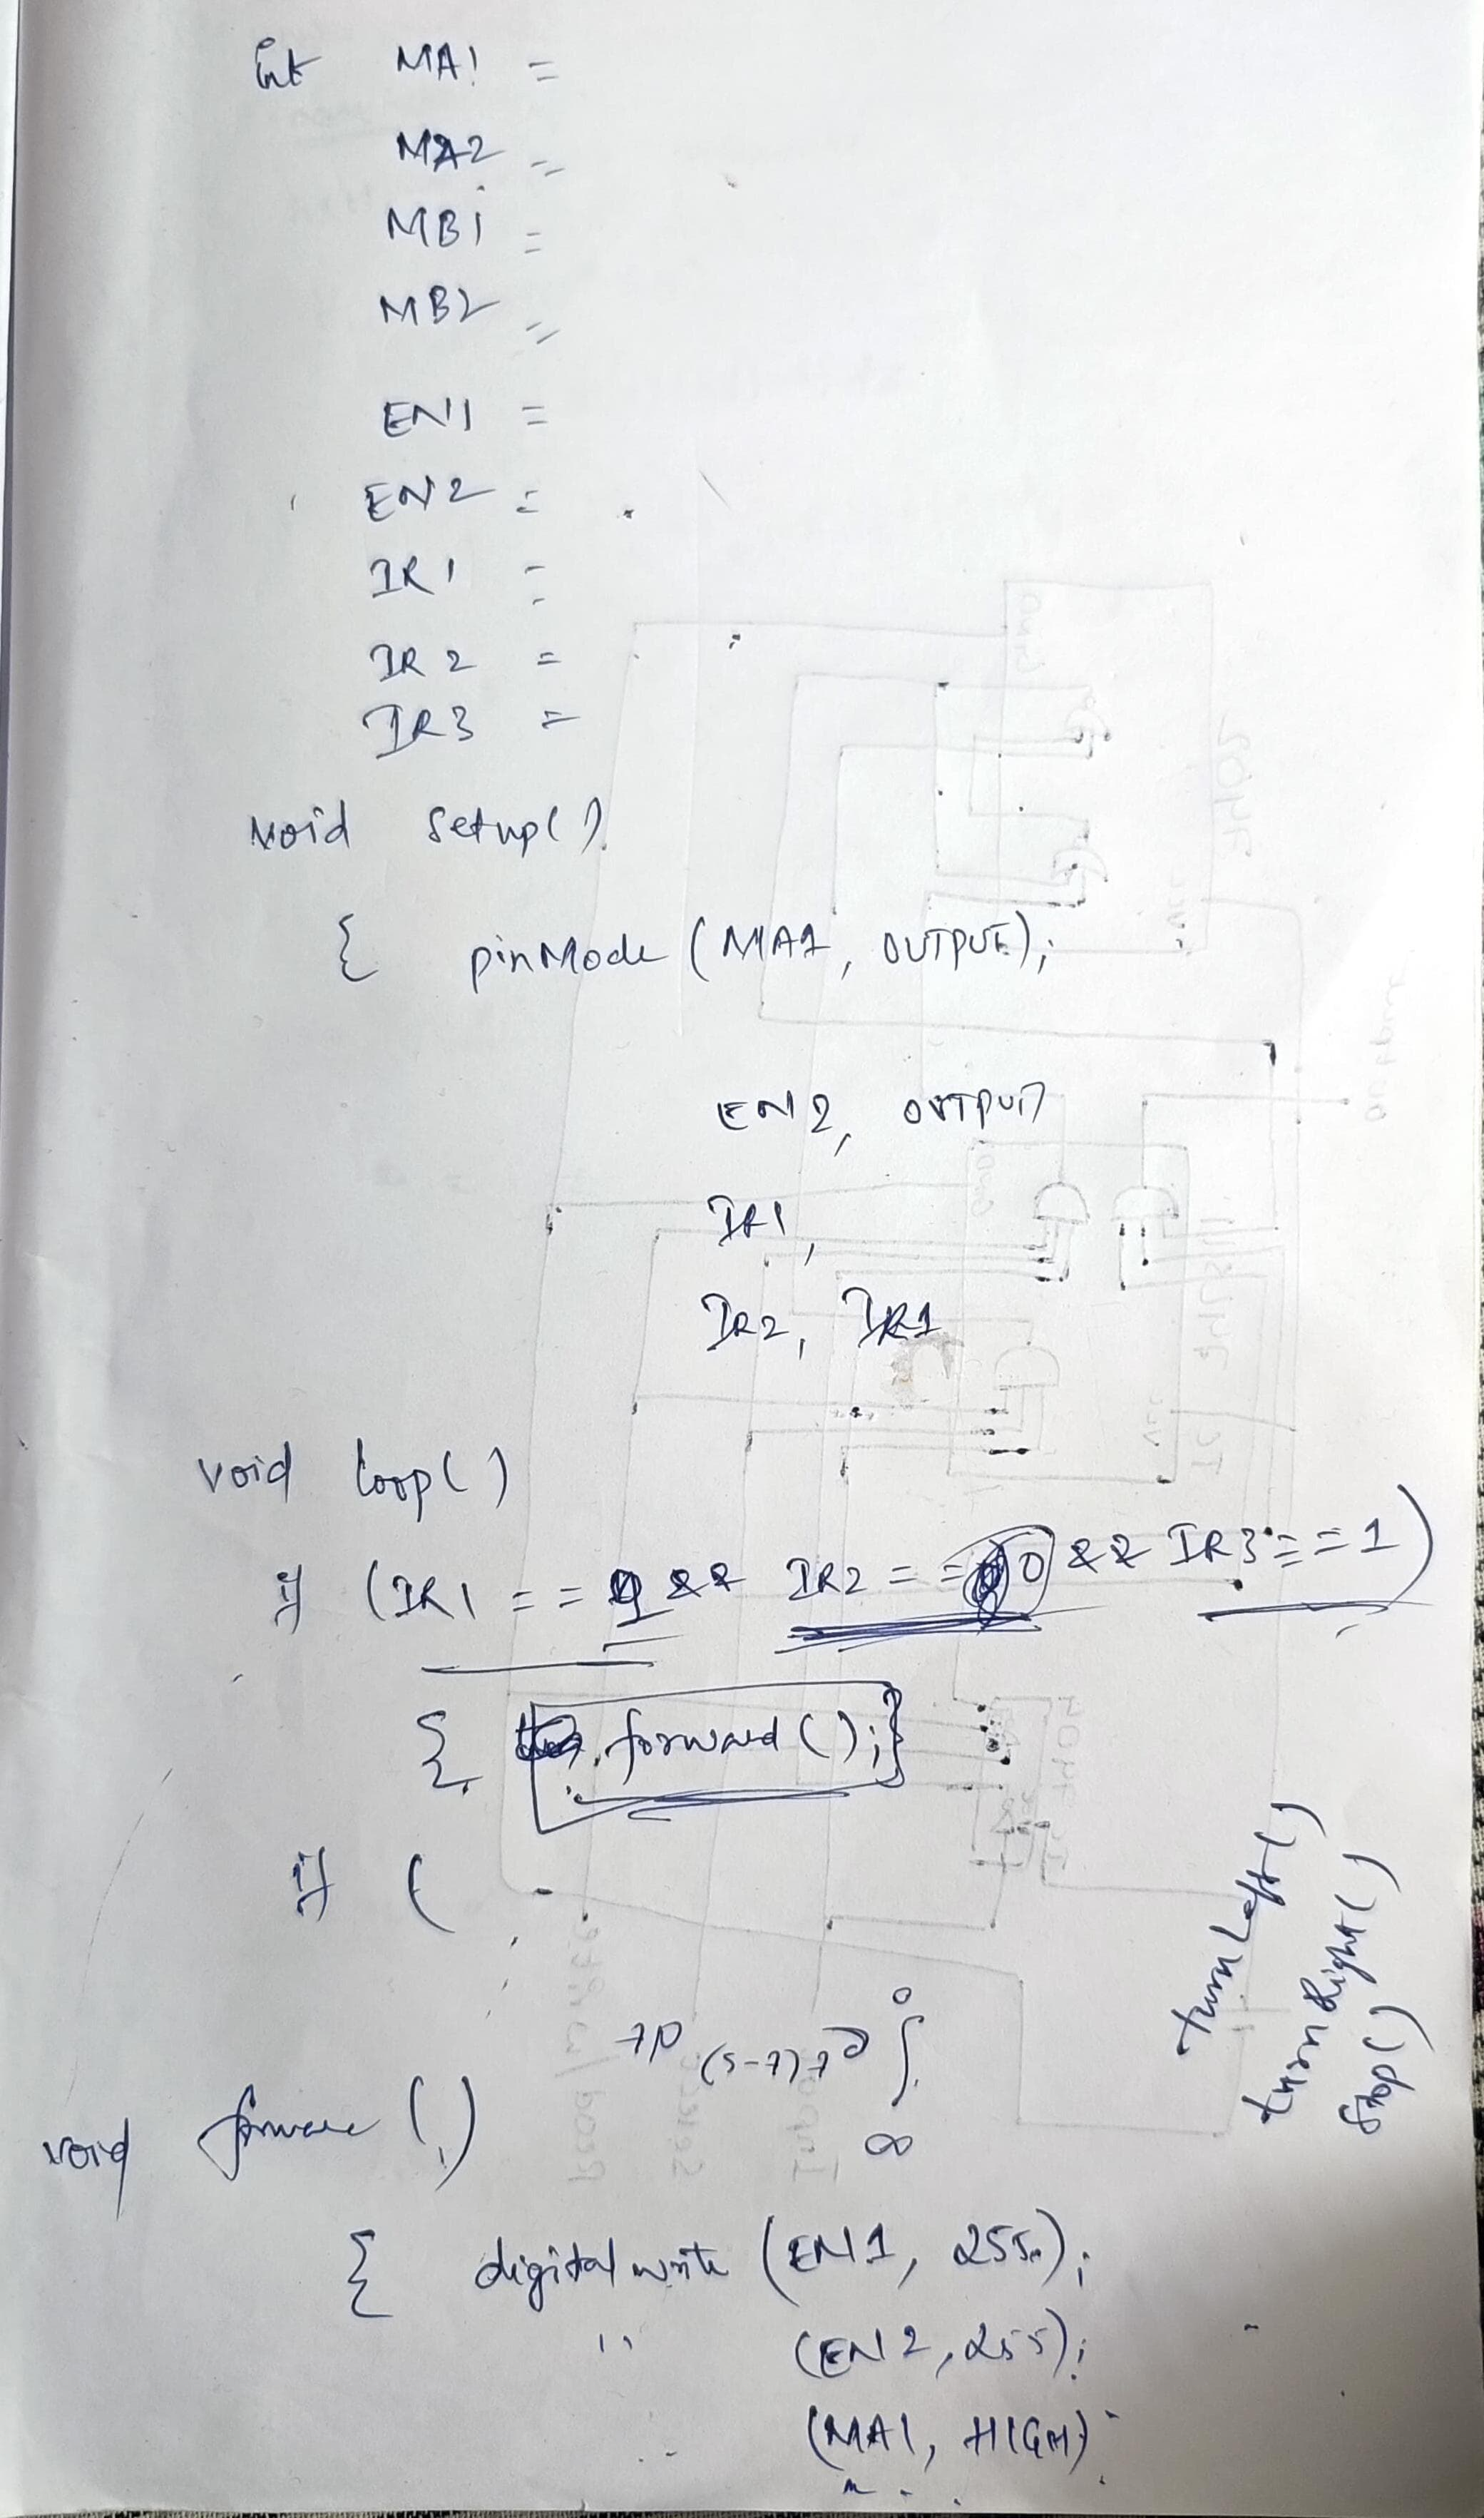 int MA1 =
MA2 =
MB1 =
MB2 =
EN1 =
EN2 =
IR1 =
IR2 =
IR3 =
void setup()
{ pinMode (MA1, OUTPUT);
EN2, OUTPUT
IR1,
IR2, IR1
void loop()
if (IR1 == 1 && IR2 == 0 && IR3 == 1)
{ forward();}
if (
turnLeft()
turnRight()
Stop()
void forward()
{ digitalwrite (EN1, 255);
" (EN2, 255);
(MA1, HIGH)